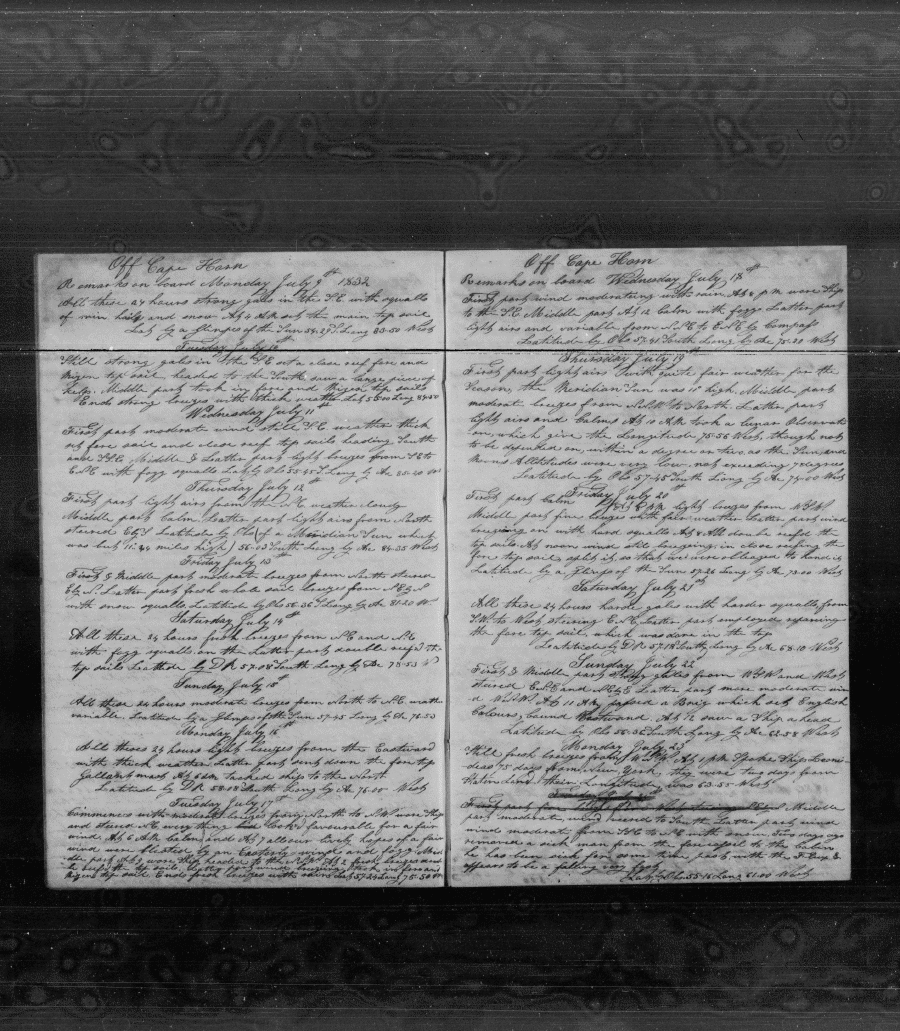 Off Cape Horn
Remarks on board Monday July 9th 1832
All these 24 hours strong gals in the SE with squalls
of rain hail and snow At 4 AM set the main top sail
Lat by a glimpes of the Sun 54.27 S Long 83.50 West
Tuesday July 10th
Still strong gals in the SE set a close reef fore and
Mizen top sails headed to the South saw a large piece of
kelp. Middle part took in fore and Mizen top sails
Ends strong breezes with thick weather Lat 55.00 Long 84.50
Wednesday July 11th
First part moderate wind still SE weather thick
set fore sail and close reef top sails heading South
and SSE Middle & Latter part light breezes from SE to
ENE with foggy squalls Lat by Obs 55.45 S Long by Ac 85.20 W
Thursday July 12th
First part light airs from the NE weather cloudy
Middle part Calm Latter part light airs from North
steered EbyS Latitude by Obs (of a Meridian Sun which
was but 11.40 miles high) 56.03 South Long by Ac 84.35 West
Friday July 13
First & Middle part moderate breezes from North steered
EbyS. Latter part fresh whole sail breezes from NEbyN
with snow squalls Latitude by Obs 56.36 S Long by Ac 81.20 W
Saturday July 14th
All these 24 hours fresh breezes from NE and NE
with foggy squalls on the Latter part double reef'd the
top sails Latitude by D R 57.08 South Long by Ac 78.53 W
Sunday July 15th
All these 24 hours moderate breezes from North to NE weather
variable. Latitude by a Glimps of the Sun 57.45 Long by Ac 76.53
Monday July 16th
All these 24 hours light breezes from the Eastward
with thick weather Latter part sent down the fore top
Gallant mast At 6 AM tacked ship to the North
Latitude by D R 58.08 South Long by Ac 76.00 West
Tuesday July 17th
Commences with moderate breezes from North to NW wore Ship
and steered SE every thing look'd favourable for a fair
wind At 6 AM Calm and At 7 all our lively hopes of a fair
wind were blasted by an Easterly wind and foggy Mid-
dle part At 9 wore Ship headed to the
top sail Ends fresh breezes with rain Lat 57.29 Long 75.50 W
Off Cape Horn
Remarks on board Wednesday July 18th
First part wind moderating with rain At 8 PM wore Ship
to the SE Middle part At 12 Calm with foggy Latter part
light airs and variable from NNE to ENE by Compass
Latitude by Obs 57.41 South Long by Ac 75.20 West
Thursday July 19th
First part light airs with quite fair weather for the
Season, the Meridian Sun was 11° high. Middle part
moderate breezes from NNW to North. Latter part
light airs and Calms At 10 AM took a Lunar Observati-
on, which give the Longitude 75.56 West, though not
to be depended on, within a degree or two, as the Sun and
Moons Altitudes were very low not exceeding 7 degrees
Latitude by Obs 57.45 South Long by Ac 75.00 West
Friday July 20
First part Calm At 8 PM light breezes from WSW
Middle part fine breezes with fair weather Latter part wind
breezing on with hard squalls At 4 AM double reef'd the
top sails At noon wind still breezing, in close reefing the
fore top sail, split it, so that we were obleaged to hand it
Latitude by a Glimps of the Sun 57.26 Long by Ac 73.00 West
Saturday July 21st
All these 24 hours hard gales with harder squalls from
SW to West steering ENE Latter part employed repairing
the fore top sail, which was done in the top
Latitude by D R 57.18 South Long by Ac 68.10 West
Sunday July 22
First & Middle part strong gales from WSW and West
steered ENE and NEbyE Latter part more moderate win
d WSW At 11 AM passed a Brig which set English
Colours, bound Westward. At 12 saw a Ship ahead
Latitude by Obs 56.35 South Long by Ac 62.58 West
Monday July 23
Still fresh breezes from WSW At 1 PM Spoke Ship Leoni-
das 75 days from New York, they were two days from
Staten land, their Longitude was 63.55 West
Middle
part moderate, wind veered to South Latter part wind
wind moderate from SSE to NE with snow. Two days ago
removed a sick man from the forecastle to the Cabin
he has been sick for some time past with the
appears to be a failing very fast
Lat by Obs 55.16 Long 61.00 West